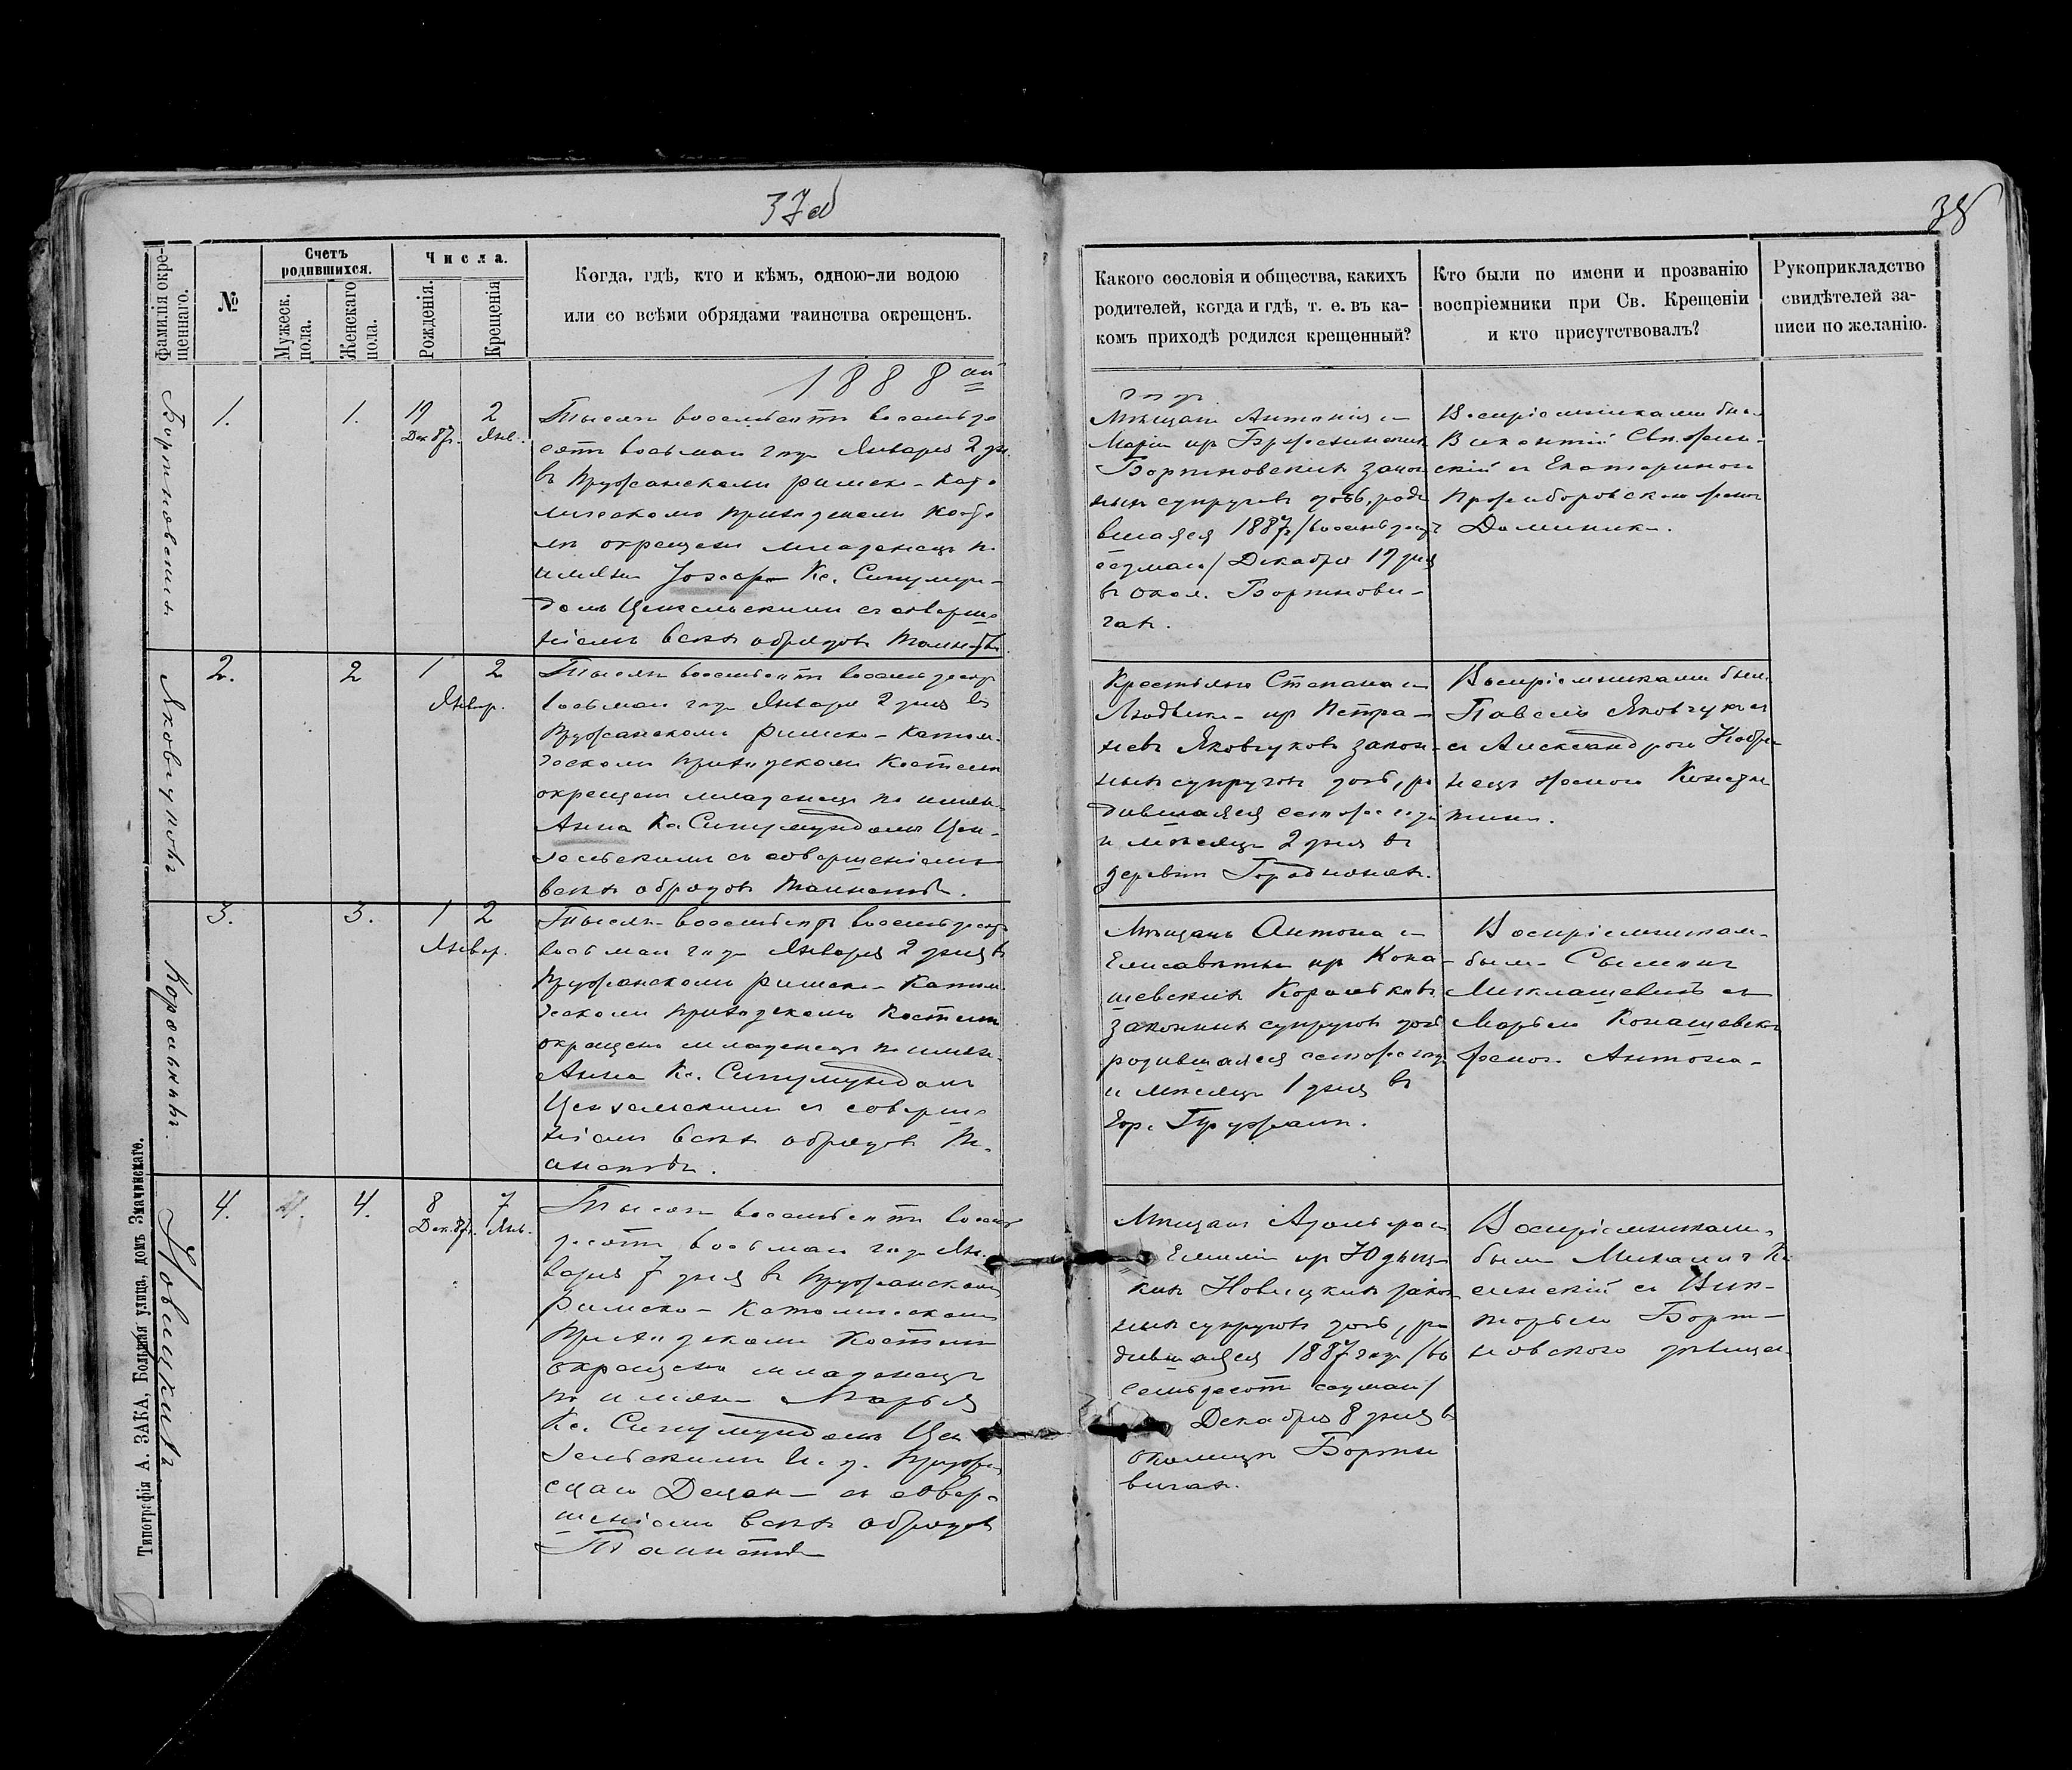 37об
38
Фамилія окре-
щеннаго.
№
Счетъ
родившихся.
Мужеск.
пола.
Женскаго
пола.
Числа.
Рожденія.
Крещенія
Когда, гдѣ, кто и кѣмъ, одною-ли водою
или со всѣми обрядами таинства окрещенъ.
Какого сословія и общества, какихъ
родителей, когда и гдѣ, т. е. въ ка-
комъ приходѣ родился крещенный?
Кто были по имени и прозванію
воспріемники при Св. Крещеніи
и кто присутствовалъ?
Рукоприкладство
свидѣтелей за-
писи по желанію.
1888
года
Бортновскихъ
1.
1.
19
Дек. 87г.
2
Янв.
Тысяча восемьсотъ восемьде
сятъ восьмаго года Января 2 дня
въ Пружанскомъ римско-като
лическомъ приходскомъ косте
лѣ окрещенъ младенецъ по
имени Кс. Сигизмун-
домъ съ соверше
ніемъ всѣхъ обрядовъ таинства
Мѣщанъ Антонія и
Маріи
Бортновскихъ закон
ныхъ супруговъ дочь, роди
вшаяся 1887г /восемьдесятъ
седьмаго/ Декабря 19 дня
въ окол. Бортнови-
чахъ.
Воспріемниками были
Викентій
скій съ Екатериною
женою
Доминика.
Яковчуковъ
2.
2
1
2
Январ.
Тысяча восемьсотъ восемьдесятъ
восьмаго года Января 2 дня въ
Пружанскомъ Римско-Католи
ческомъ приходскомъ костелѣ
окрещенъ младенецъ по имени
Анна Кс. Сигизмундомъ Цен-
съ совершеніемъ
всѣхъ обрядовъ таинства.
Крестьянъ Степана и
Людвики изъ Петра-
Яковчуковъ закон-
ныхъ супруговъ дочь, ро
дившаяся сегоже года
и мѣсяца 2 дня въ
деревнѣ
Воспріемниками были
Павелъ Яковчукъ
съ Александрою
женою Констан
тина.
Корольковъ.
3.
3.
1
2
Январ.
Тысяча восемьсотъ восемьдесятъ
восьмаго года Января 2 дня въ
Пружанскомъ римско-католи
ческомъ приходскомъ костелѣ
окрещенъ младенецъ по имени
Анна Кс. Сигизмундомъ
съ соверше
ніемъ всѣхъ обрядовъ та
инства.
Мѣщанъ Антона и
Елисаветы изъ Кона-
шевскихъ Корольковъ
законныхъ супруговъ дочь
родившаяся сегоже года
и мѣсяца 1 дня въ
гор. Пружанахъ.
Воспріемниками
были
Миклашевичъ съ
Марьею Конашевскою
женою Антона
Новицкихъ
4.
4.
4.
8
Дек. 87г.
7
Янв.
Тысяча восемьсотъ восемь
десятъ восьмаго года Ян
варя 7 дня въ Пружанскомъ
Римско-Католическомъ
приходскомъ костелѣ
окрещенъ младенецъ
по имени Марья
Кс. Сигизмундомъ Цен
И. д. Пружан
скаго Декана съ совер-
шеніемъ всѣхъ обрядовъ
Таинства
Мѣщанъ Адольфа и
Емиліи изъ Юдыц-
кихъ Новицкихъ закон
ныхъ супруговъ дочь, ро
дившаяся 1887 года /во
семьдесятъ седьмаго/
Декабря 8 дня въ
околицѣ Бортно
вичахъ.
Воспріемниками
были Михаилъ
съ Вик-
торьею Борт-
новскою дѣвицею
Типографія А. ЗАКА, Большая улица, домъ Змачинскаго.